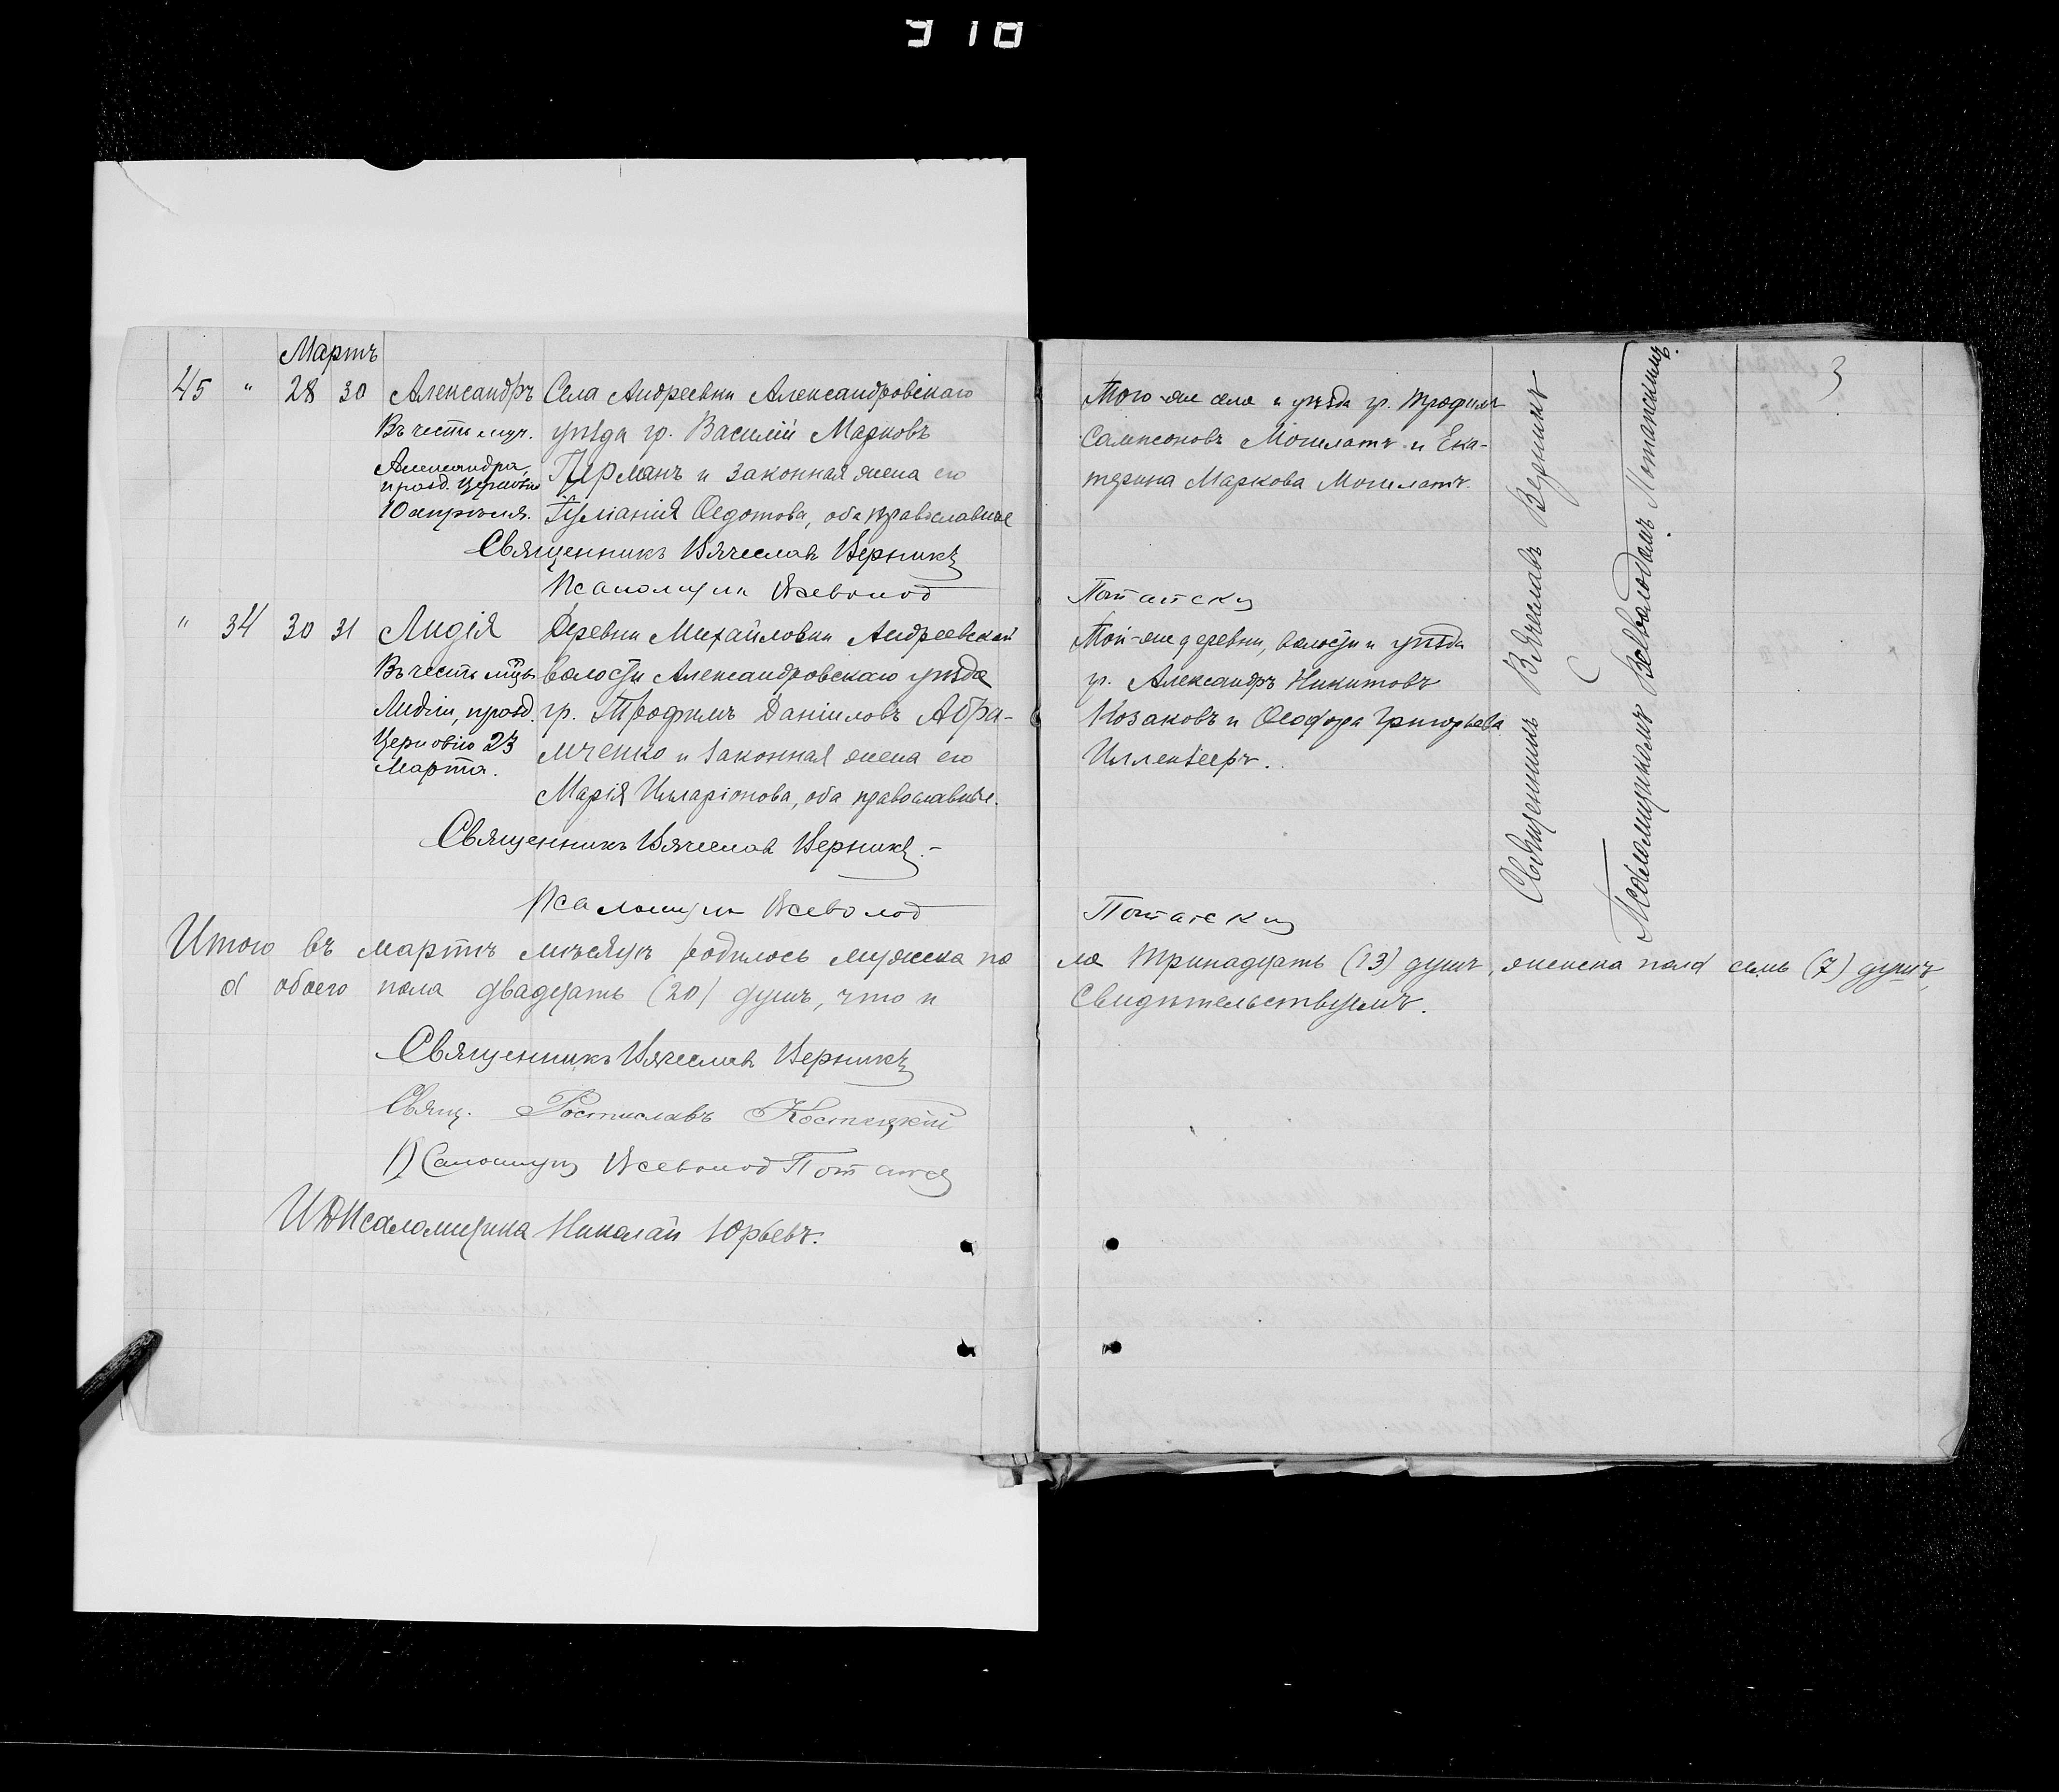 Мартъ
45 " 28 30 Александръ Села Андреевки Александровскаго
Въ честь муч. уѣзда гр. Василій Марковъ
Александра, Пурманъ и законная жена его
празд. Церковію
10 апрѣля. Іуліанія Ѳедотова, оба православные
Священникъ Вячеславъ Верникъ
Псаломщикъ Всеволод
" 34 30 31 Лидія Деревни Михайловки Андреевской
Въ честь мцы волости Александровскаго уѣзда
Лидіи, празд. гр. Трофимъ Даніиловъ Абра-
Церковію 23 мченко и законная жена его
Марта.
Марія Илларіонова, оба православные.
Священникъ Вячеславъ Верникъ.-
Псаломщикъ Всеволод
Итого въ мартѣ мѣсяцѣ родилось мужска по
а обоего пола двадцать (20) душъ, что и
Священникъ Вячеславъ Верникъ
Свящ. Ростиславъ Костецкій
Псаломщик Всеволод Потапск
И Д Псаломщика Николай Юрьевъ.
3
Того-же села и уѣзда гр. Трофимъ
Сампсоновъ Могилатъ и Ека-
терина Маркова Могилатъ.
Потапски
Той-же деревни, волости и уѣзда
гр. Александръ Никитовъ
Козаковъ и Ѳеодора Григорьева
Потапски
ла тринадцать (13) душъ, женска пола семь (7) душъ,
свидѣтельствуемъ.
Священникъ Вячеславъ Верникъ
С
Псаломщикомъ Всеволодомъ Потапскимъ.